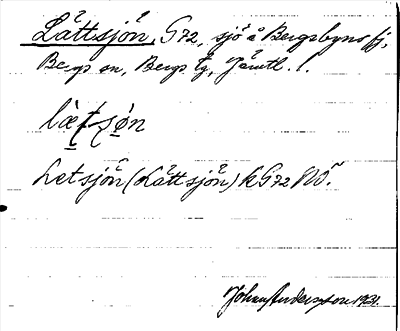 Lättsjön, G72, sjö å Bergsbyns fj,
Bergs sn, Bergs tg, Jämtl. l.
lætsøn
Letsjön (Lättsjön) k G72 NÖ.
Johan Anderson 1931.